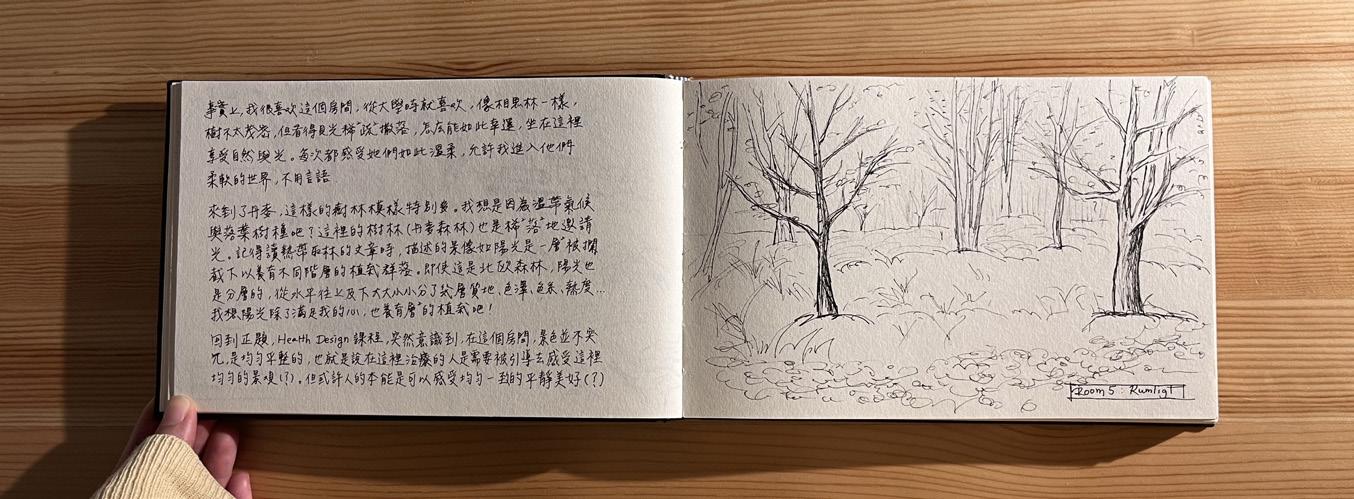 事實上,我很喜歡這個房間,從大學時就喜歡,像相思林一樣,
樹不太茂密,但看得見光稀"疏"撒落,怎麼能如此幸運,坐在這裡
享受自然與光。每次都感受她們如此溫柔,允許我進入他們
柔軟的世界,不用言語
來到了丹麥,這樣的樹林模樣特別多。我想是因為溫帶氣候
與落葉樹種吧?這裡的樹林(丹麥森林)也是稀"落"地邀請
光。記得讀熱帶雨林的文章時,描述的景像如陽光是一層"被攔
截下以養育不同階層的植氣群落。即使這是北歐森林,陽光也
是分層的,從水平往上及下大大小小分了幾層質地、色澤、色系、熱度...
我想陽光除了滿足我的心,也養育層"的植氣吧!
回到正題,Health Design 課程,突然意識到,在這個房間,景色並不突
兀,是均勻平整的,也就是說在這裡治療的人是需要被引導去感受這裡
均勻的景唄(?)。但或許人的本能是可以感受均勻一致的平靜美好(?)
Room 5 : Rumligt